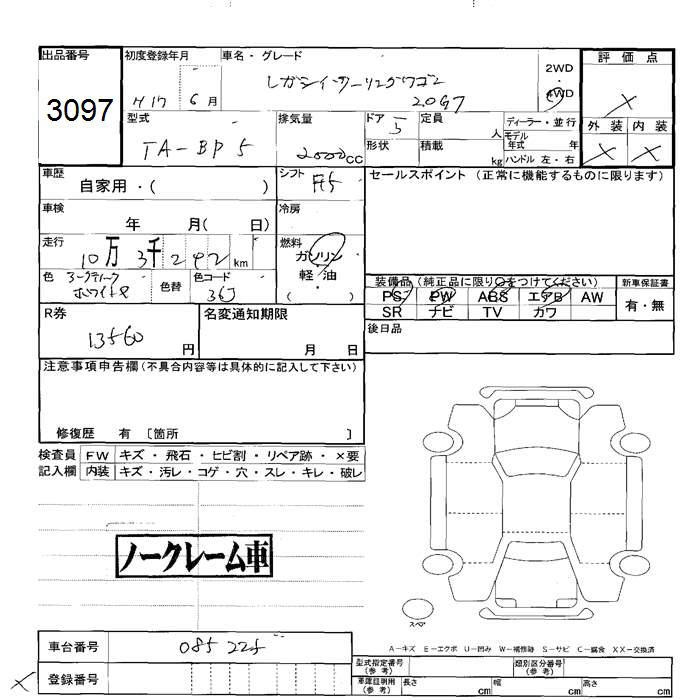 出品番号 初度登録年月 車名・グレード 評価点
3097
レガシイツーリングワゴン
2WD
・
4WD
H17 6月 20GT
×
型式 排気量 ドア 定員 人 ディーラー・並行 外装 内装
TA-BP5 2000CC 5
モデル年式 年
形状 積載 kg ハンドル 左・右 × ×
車歴 自家用・( ) シフト セールスポイント (正常に機能するものに限ります)
車検 年 月( 日) 冷房
走行 10万 3千 292 km 燃料 ガソリン
・
軽・油
・
( )
色 ホワイトP 色替 色コード
装備品(純正品に限り○をつけてください) 新車保証書
PS PW ABS エアB AW 有・無
SR ナビ TV カワ
R券 13560 円 名変通知期限 月 日 後日品
注意事項申告欄(不具合内容等は具体的に記入して下さい)
修復歴 有 [箇所 ]
検査員 FW キズ・飛石・ヒビ割・リペア跡・×要
記入欄 内装 キズ・汚レ・コゲ・穴・スレ・キレ・破レ
ノークレーム車
スペア
A-キズ E-エクボ U-凹み W-補修跡 S-サビ C-腐食 XX-交換済
車台番号 085225
× 登録番号
型式指定番号(参考) 類別区分番号(参考)
車庫証明用(参考) 長さ cm 幅 cm 高さ cm